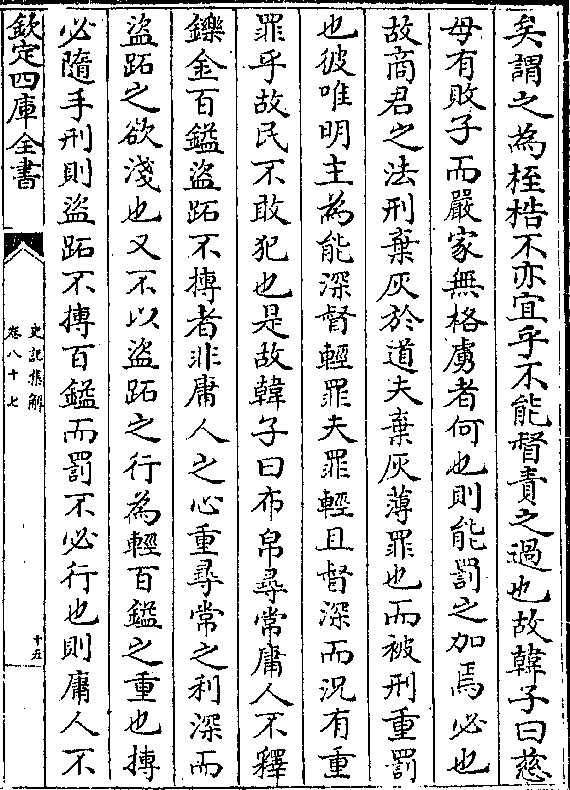 矣謂之為桎梏不亦宜乎不能督責之過也故韓子曰慈
母有敗子而嚴家無格虜者何也則能罰之加焉必也
故商君之法刑棄灰於道夫棄灰薄罪也而被刑重罰
也彼唯明主為能深督輕罪夫罪輕且督深而況有重
罪乎故民不敢犯也是故韓子曰布帛尋常庸人不釋
鑠金百鎰盜跖不摶者非庸人之心重尋常之利深而
盜跖之欲淺也又不以盜跖之行為輕百鎰之重也摶
必隨手刑則盜跖不摶百鎰而罰不必行也則庸人不
欽定四庫全書
史記集解
卷八十七
十五